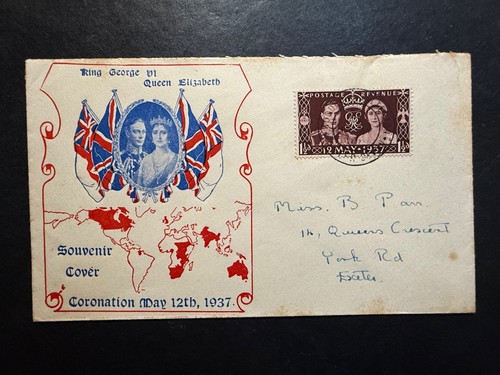 King George VI
Queen Elizabeth
Souvenir
Cover
Coronation May 12th, 1937.
POSTAGE REVENUE
1½d 12 MAY · 1937 1½d
Miss. B Parr.
14, Queens Crescent
York Rd
Exeter.